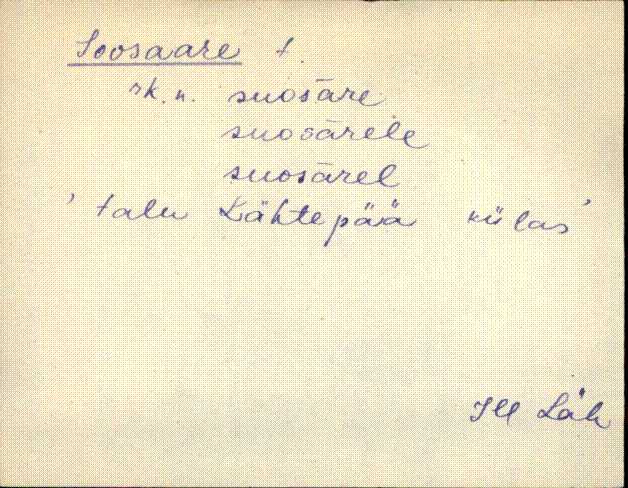 Soosaare t.
rk. n. suosāre
suosārele
suosārel
' talu Lähtepää külas '
Jll Läh